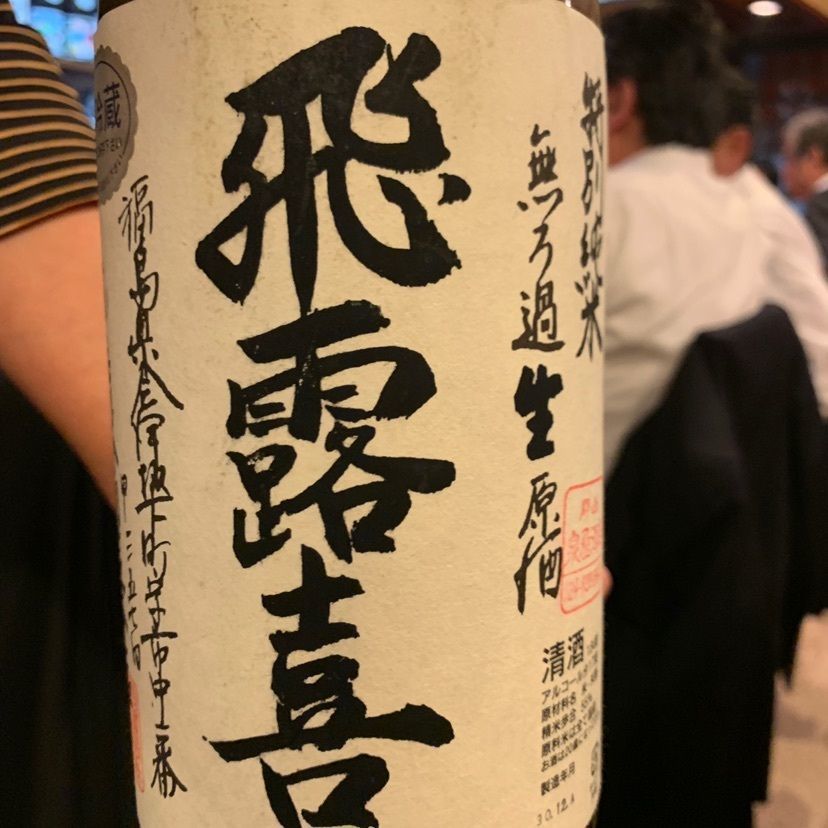 特別純米
無ろ過生原酒
飛露喜
清酒
アルコール分
原材料名 米
精米歩合
原料米は全て
お酒は20歳に
製造年月
30.12.
蔵
福島県会津坂下町字市中一番